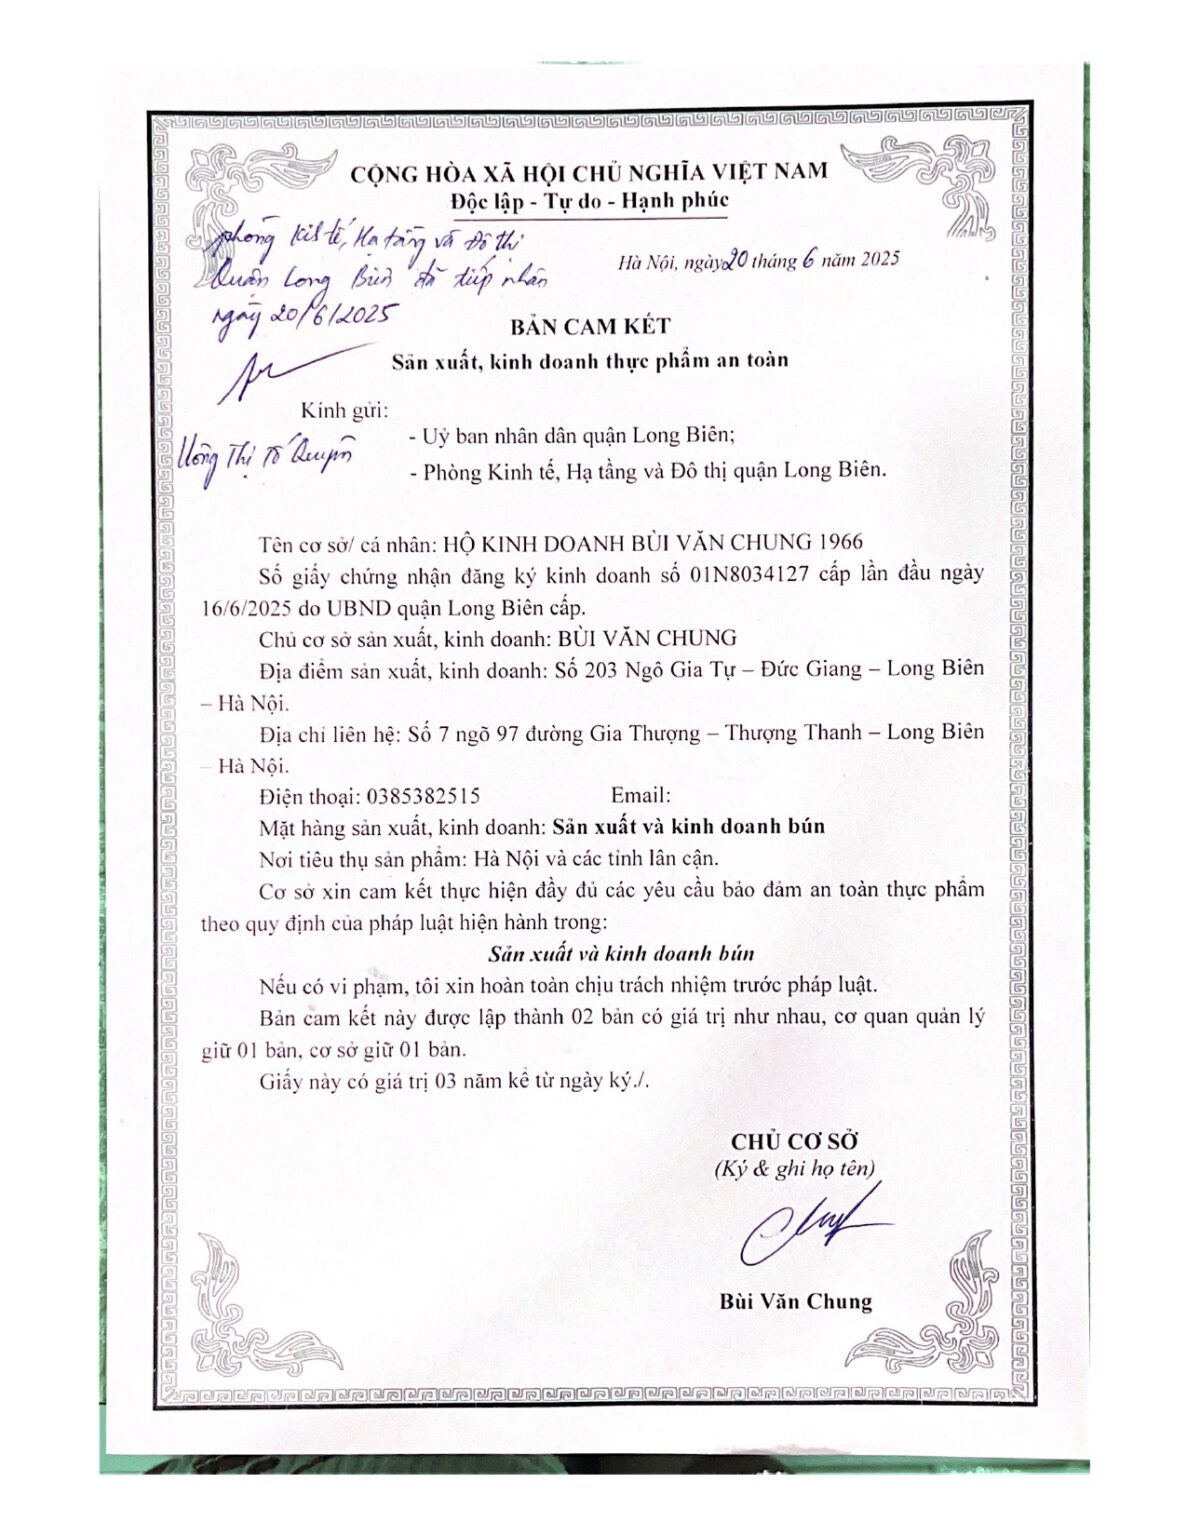 CỘNG HÒA XÃ HỘI CHỦ NGHĨA VIỆT NAM
Độc lập - Tự do - Hạnh phúc
phòng Kinh tế, Hạ tầng và Đô thị
Quận Long Biên đã tiếp nhận
ngày 20/6/2025
Hà Nội, ngày 20 tháng 6 năm 2025
BẢN CAM KẾT
Sản xuất, kinh doanh thực phẩm an toàn
Kính gửi:
- Uỷ ban nhân dân quận Long Biên;
Uông Thị Tố Quyên
- Phòng Kinh tế, Hạ tầng và Đô thị quận Long Biên.
Tên cơ sở/ cá nhân: HỘ KINH DOANH BÙI VĂN CHUNG 1966
Số giấy chứng nhận đăng ký kinh doanh số 01N8034127 cấp lần đầu ngày
16/6/2025 do UBND quận Long Biên cấp.
Chủ cơ sở sản xuất, kinh doanh: BÙI VĂN CHUNG
Địa điểm sản xuất, kinh doanh: Số 203 Ngô Gia Tự – Đức Giang – Long Biên
– Hà Nội.
Địa chỉ liên hệ: Số 7 ngõ 97 đường Gia Thượng – Thượng Thanh – Long Biên
– Hà Nội.
Điện thoại: 0385382515 Email:
Mặt hàng sản xuất, kinh doanh: Sản xuất và kinh doanh bún
Nơi tiêu thụ sản phẩm: Hà Nội và các tỉnh lân cận.
Cơ sở xin cam kết thực hiện đầy đủ các yêu cầu bảo đảm an toàn thực phẩm
theo quy định của pháp luật hiện hành trong:
Sản xuất và kinh doanh bún
Nếu có vi phạm, tôi xin hoàn toàn chịu trách nhiệm trước pháp luật.
Bản cam kết này được lập thành 02 bản có giá trị như nhau, cơ quan quản lý
giữ 01 bản, cơ sở giữ 01 bản.
Giấy này có giá trị 03 năm kể từ ngày ký./.
CHỦ CƠ SỞ
(Ký & ghi họ tên)
Bùi Văn Chung